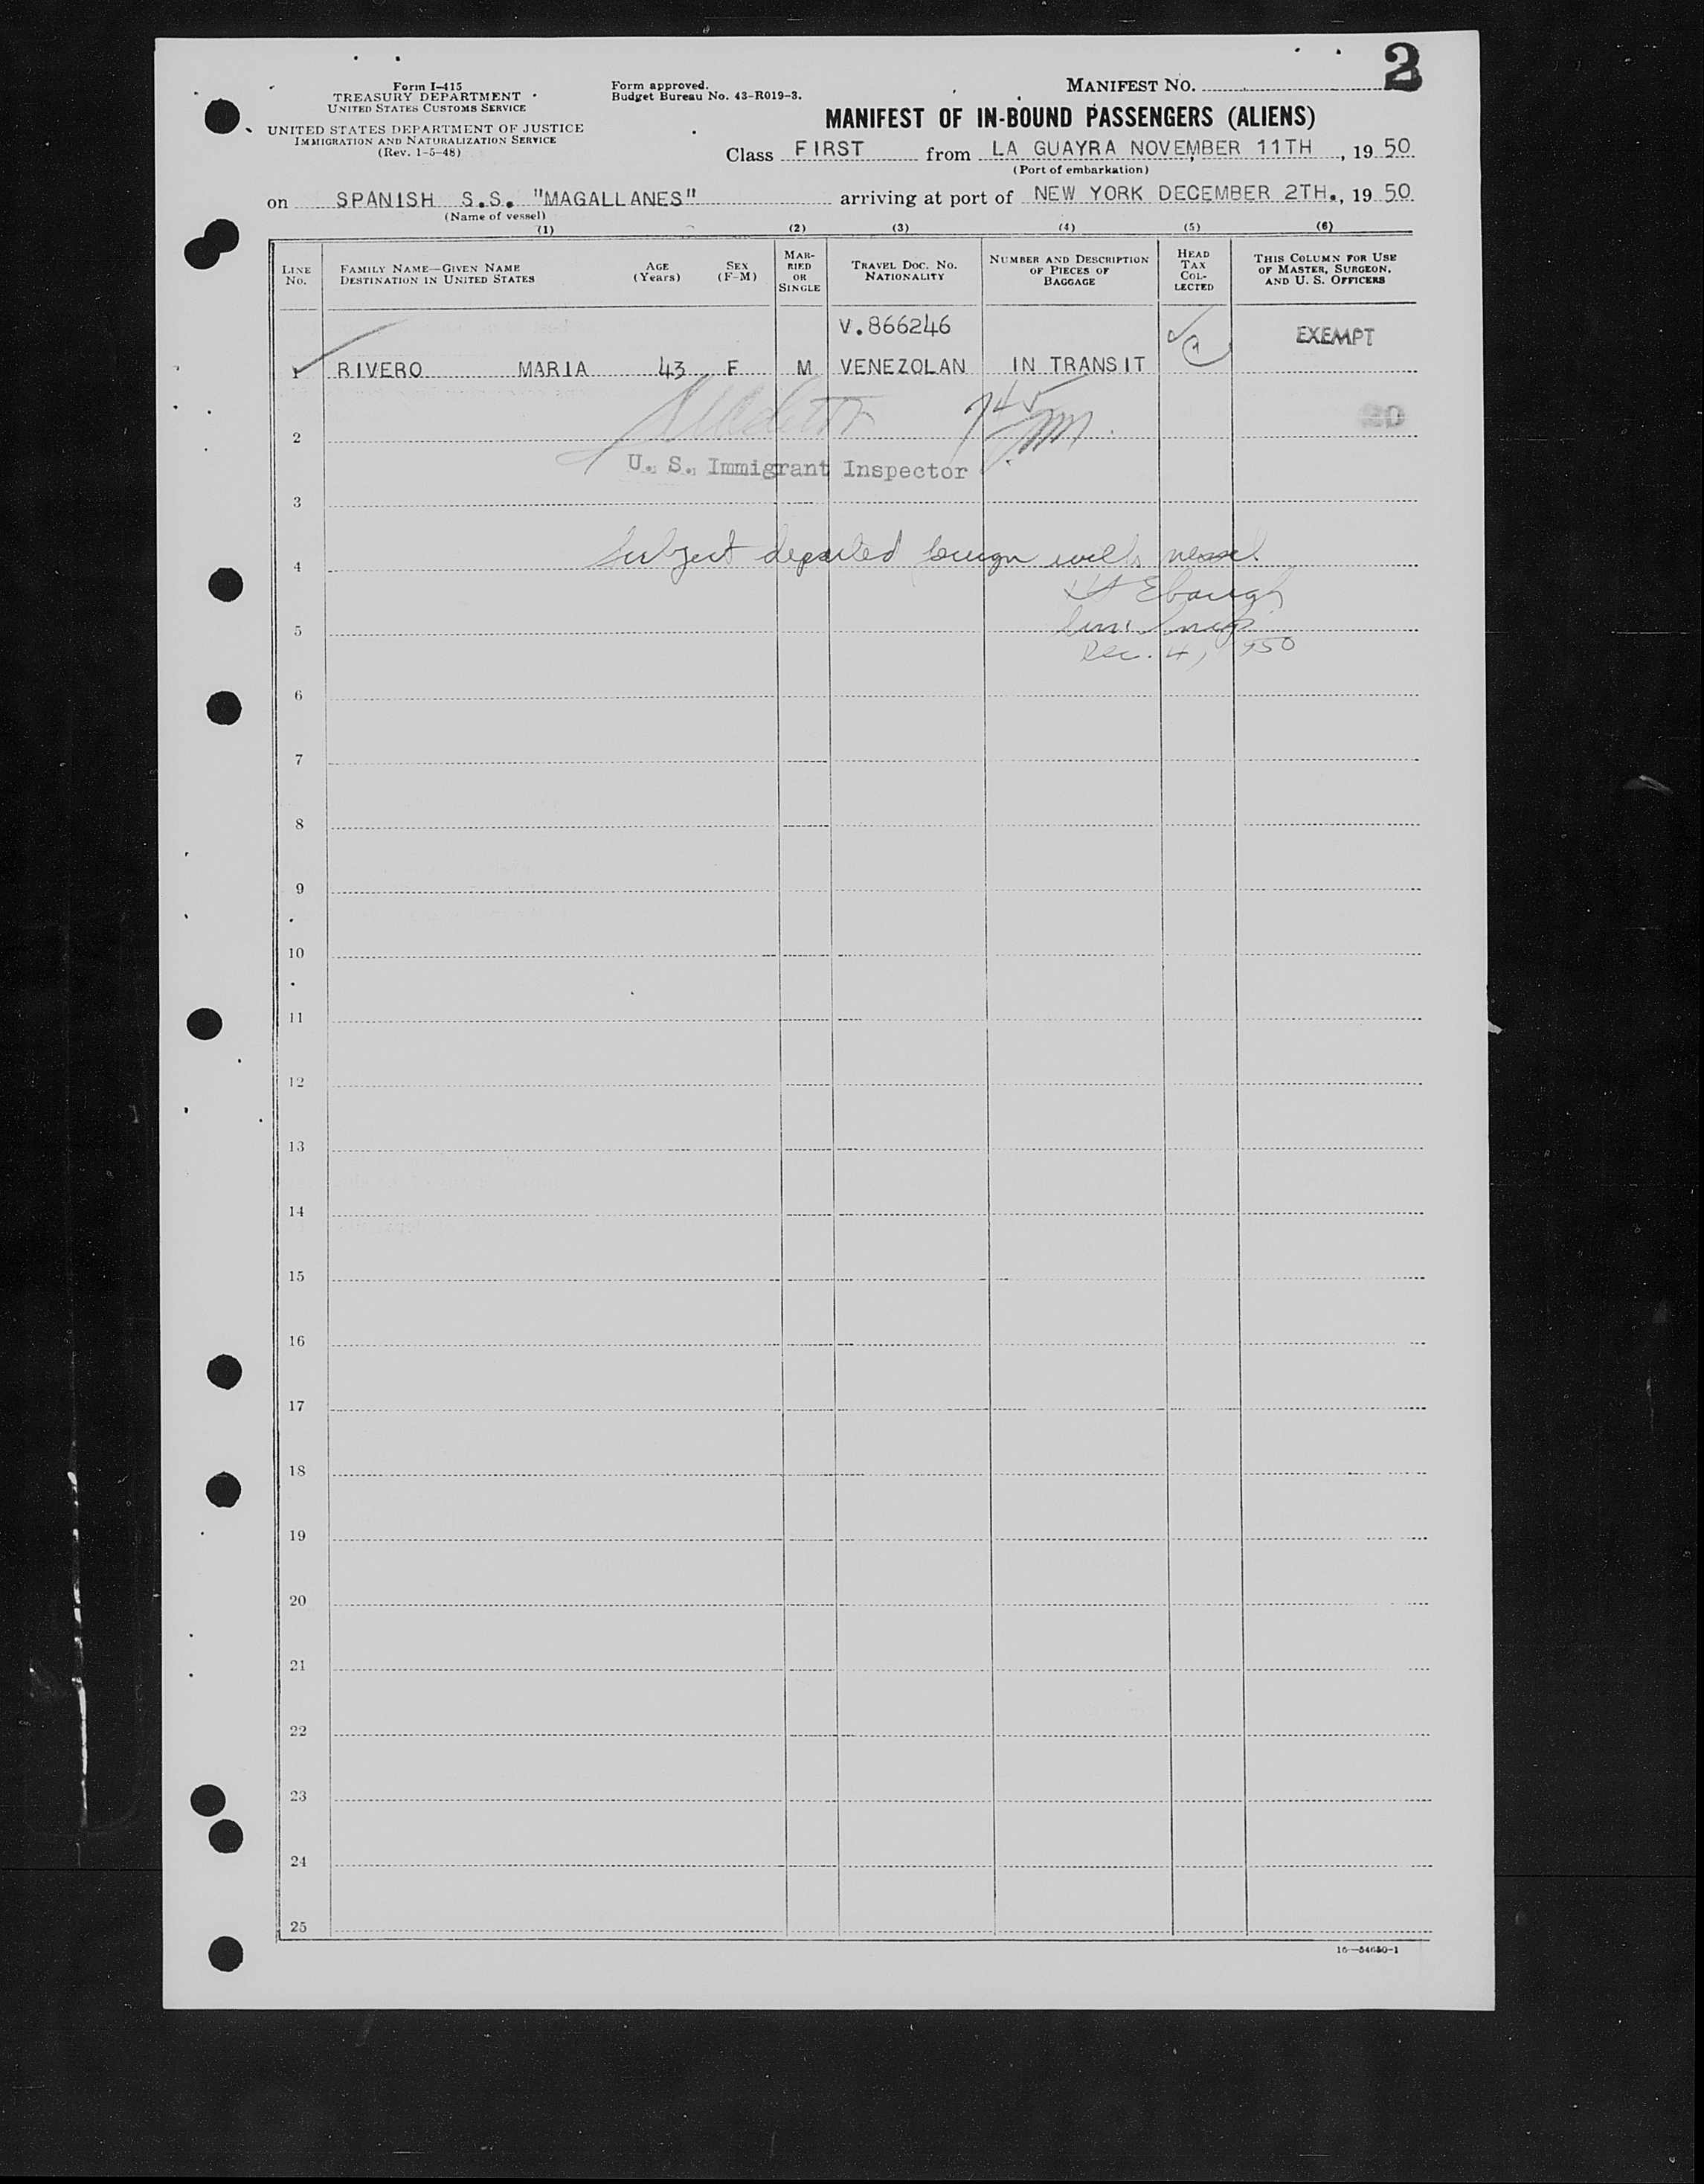 2
Form I-415
TREASURY DEPARTMENT
UNITED STATES CUSTOMS SERVICE
UNITED STATES DEPARTMENT OF JUSTICE
IMMIGRATION AND NATURALIZATION SERVICE
(Rev. 1-5-48)
Form approved.
Budget Bureau No. 43-R019-3.
MANIFEST NO.
MANIFEST OF IN-BOUND PASSENGERS (ALIENS)
Class FIRST from LA GUAYRA NOVEMBER 11TH, 19 50
(Port of embarkation)
on SPANISH S.S. "MAGALLANES" arriving at port of NEW YORK DECEMBER 2TH., 19 50
(Name of vessel)
(1) (2) (3) (4) (5) (6)
LINE NO.
FAMILY NAME—GIVEN NAME
DESTINATION IN UNITED STATES
AGE (Years)
SEX (F-M)
MARRIED OR SINGLE
TRAVEL DOC. NO.
NATIONALITY
NUMBER AND DESCRIPTION OF PIECES OF BAGGAGE
HEAD TAX COLLECTED
THIS COLUMN FOR USE OF MASTER, SURGEON, AND U. S. OFFICERS
V.866246
EXEMPT
1 RIVERO MARIA 43 F M VENEZOLAN IN TRANSIT
2
U. S. Immigrant Inspector
3
Subject departed foreign with vessel.
4
Ebaugh
5
Imm. Insp.
Dec. 4, 1950
6
7
8
9
10
11
12
13
14
15
16
17
18
19
20
21
22
23
24
25
16—54650-1